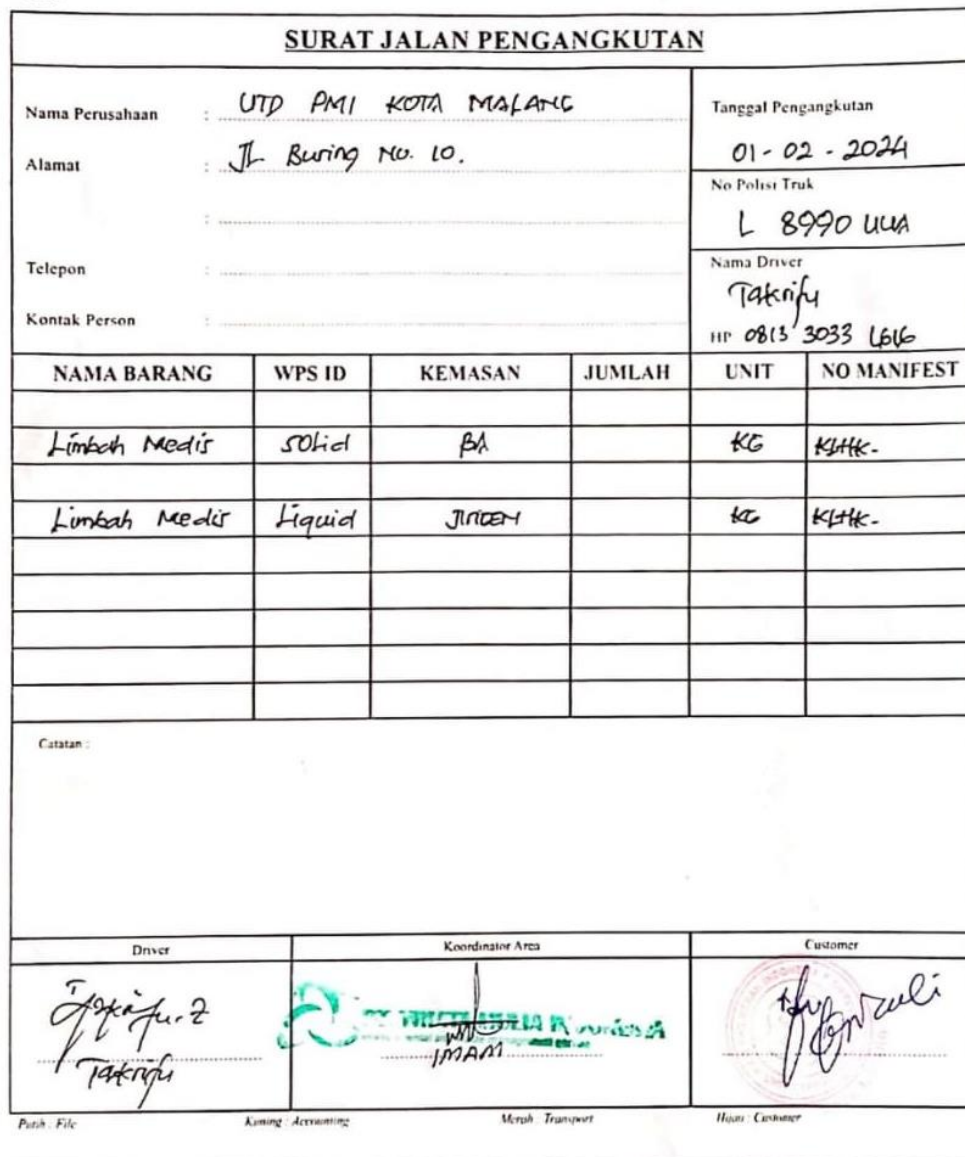 SURAT JALAN PENGANGKUTAN
Nama Perusahaan : UTD PMI KOTA MALANG
Alamat : JL Buring No. 10.
:
Telepon :
Kontak Person :
Tanggal Pengangkutan
01-02-2024
No Polisi Truk
L 8990 UUA
Nama Driver
Takrifu
HP 0813 3033
NAMA BARANG WPS ID KEMASAN JUMLAH UNIT NO MANIFEST
Limbah Medis Solid KG KLHK-
Limbah Medis Liquid JIRIGEN KG KLHK-
Catatan :
Driver Koordinator Area Customer
Takrifu IMAM
Putih : File Kuning : Accounting Merah : Transport Hijau : Customer